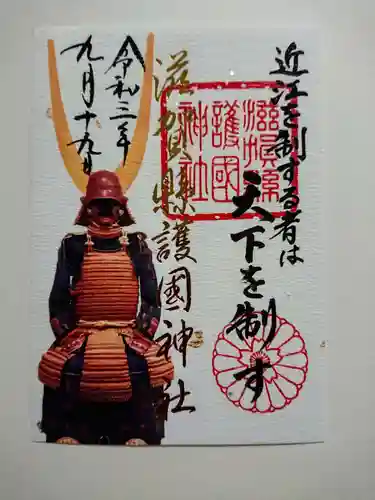 近江を制する者は
天下を制す
滋賀縣護國神社
滋賀縣
護國
神社
令和三年
九月十九日